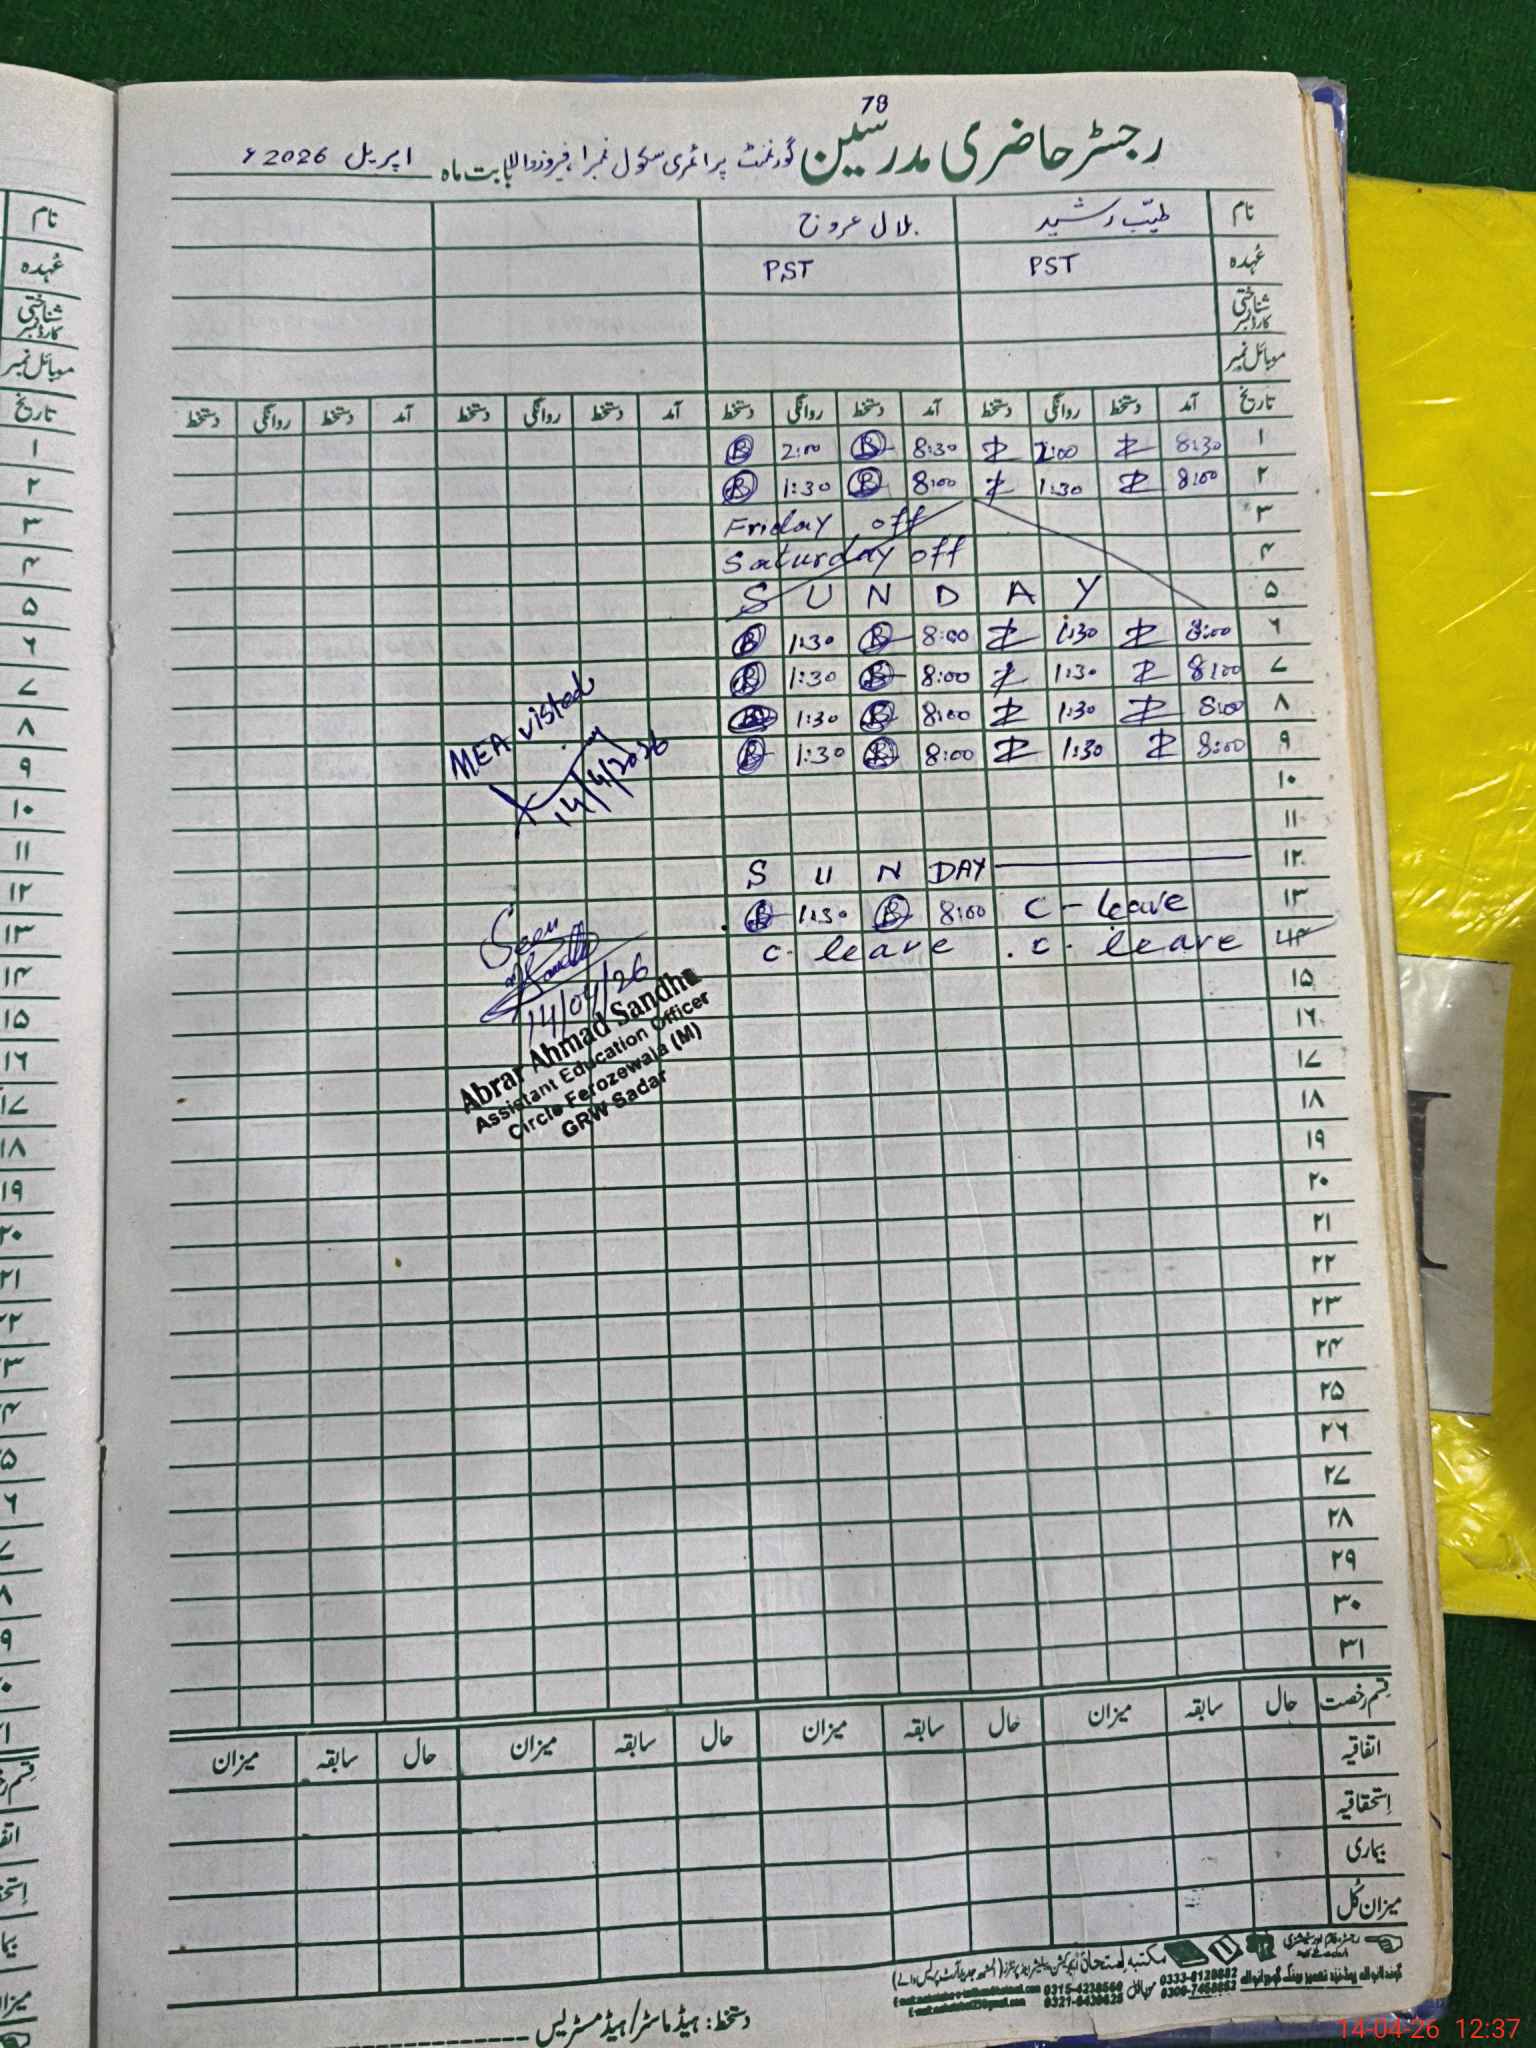 78
رجسٹر حاضری مدرسین گورنمنٹ پرائمری سکول نمبرا، فیروزوالا بابت ماہ اپریل 2026ء
نام طیّب رشید بلال عروج
عُہدہ PST PST
شناختی کارڈ نمبر
موبائل نمبر
تاریخ آمد دستخط روانگی دستخط آمد دستخط روانگی دستخط آمد دستخط روانگی دستخط آمد دستخط روانگی دستخط
۱ 8:30 2:00 8:30 B 2:00 B
۲ 8:00 1:30 8:00 B 1:30 B
۳ Friday off
۴ Saturday off
۵ S U N D A Y
۶ 8:00 1:30 8:00 B 1:30 B
۷ 8:00 1:30 8:00 B 1:30 B
۸ 8:00 1:30 8:00 B 1:30 B
۹ 8:00 1:30 8:00 B 1:30 B
۱۰
۱۱
۱۲ S U N DAY
۱۳ C - leave 8:00 B 1:30 B
۱۴ c. leave c. leave
۱۵
۱۶
۱۷
۱۸
۱۹
۲۰
۲۱
۲۲
۲۳
۲۴
۲۵
۲۶
۲۷
۲۸
۲۹
۳۰
۳۱
MEA visted
14/4/2026
Seen
14/04/26
Abrar Ahmad Sandhu
Assistant Education Officer
Circle Ferozewala (M)
GRW Sadar
قسم رخصت حال سابقہ میزان حال سابقہ میزان حال سابقہ میزان حال سابقہ میزان
اتفاقیہ
استحقاقیہ
بیماری
میزان کُل
دستخط: ہیڈ ماسٹر/ہیڈ مسٹریس
14-04-26 12:37